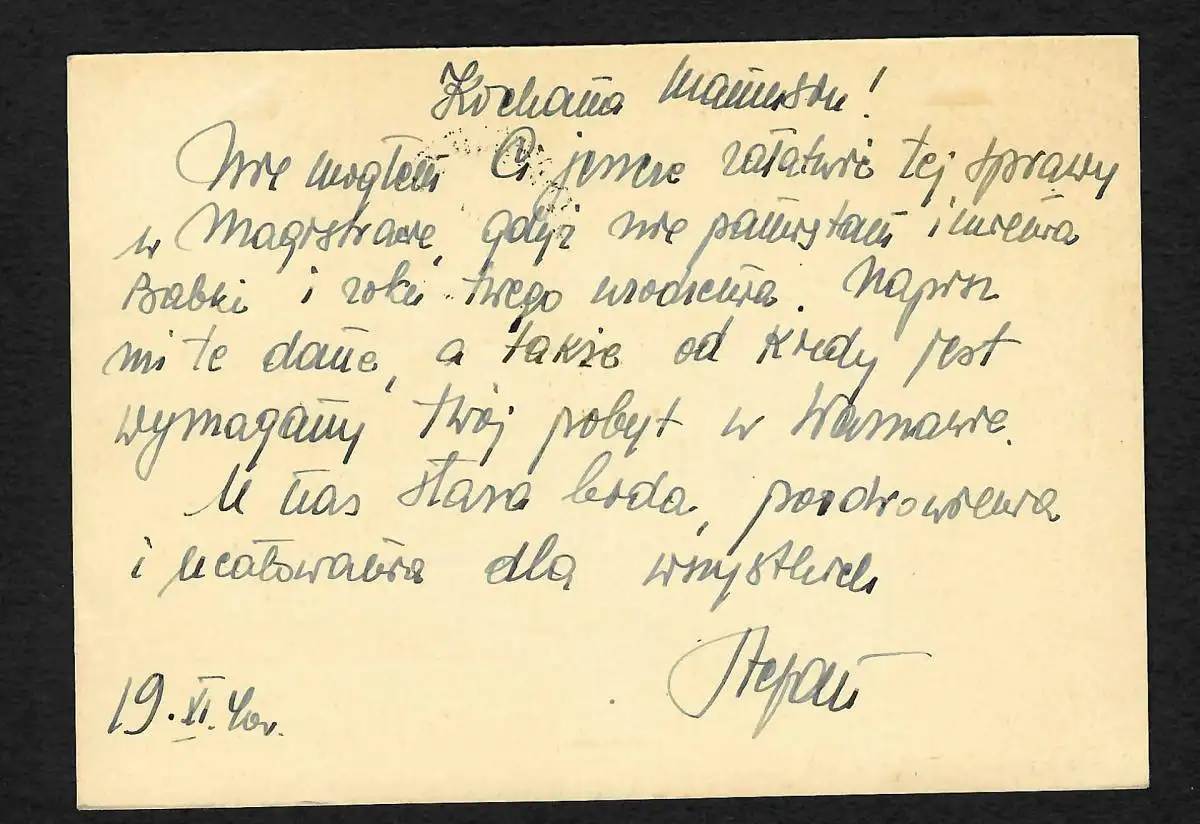 Kochana Mamusiu!
Nie mogłem Ci jeszcze załatwić tej sprawy
w Magistracie, gdyż nie pamiętam imienia
Babki i roku twego urodzenia. Napisz
mi te dane, a także od kiedy jest
wymagany twój pobyt w Warszawie.
U nas stara bieda, pozdrowienia
i ucałowania dla wszystkich
Stefan
19.XI.40r.